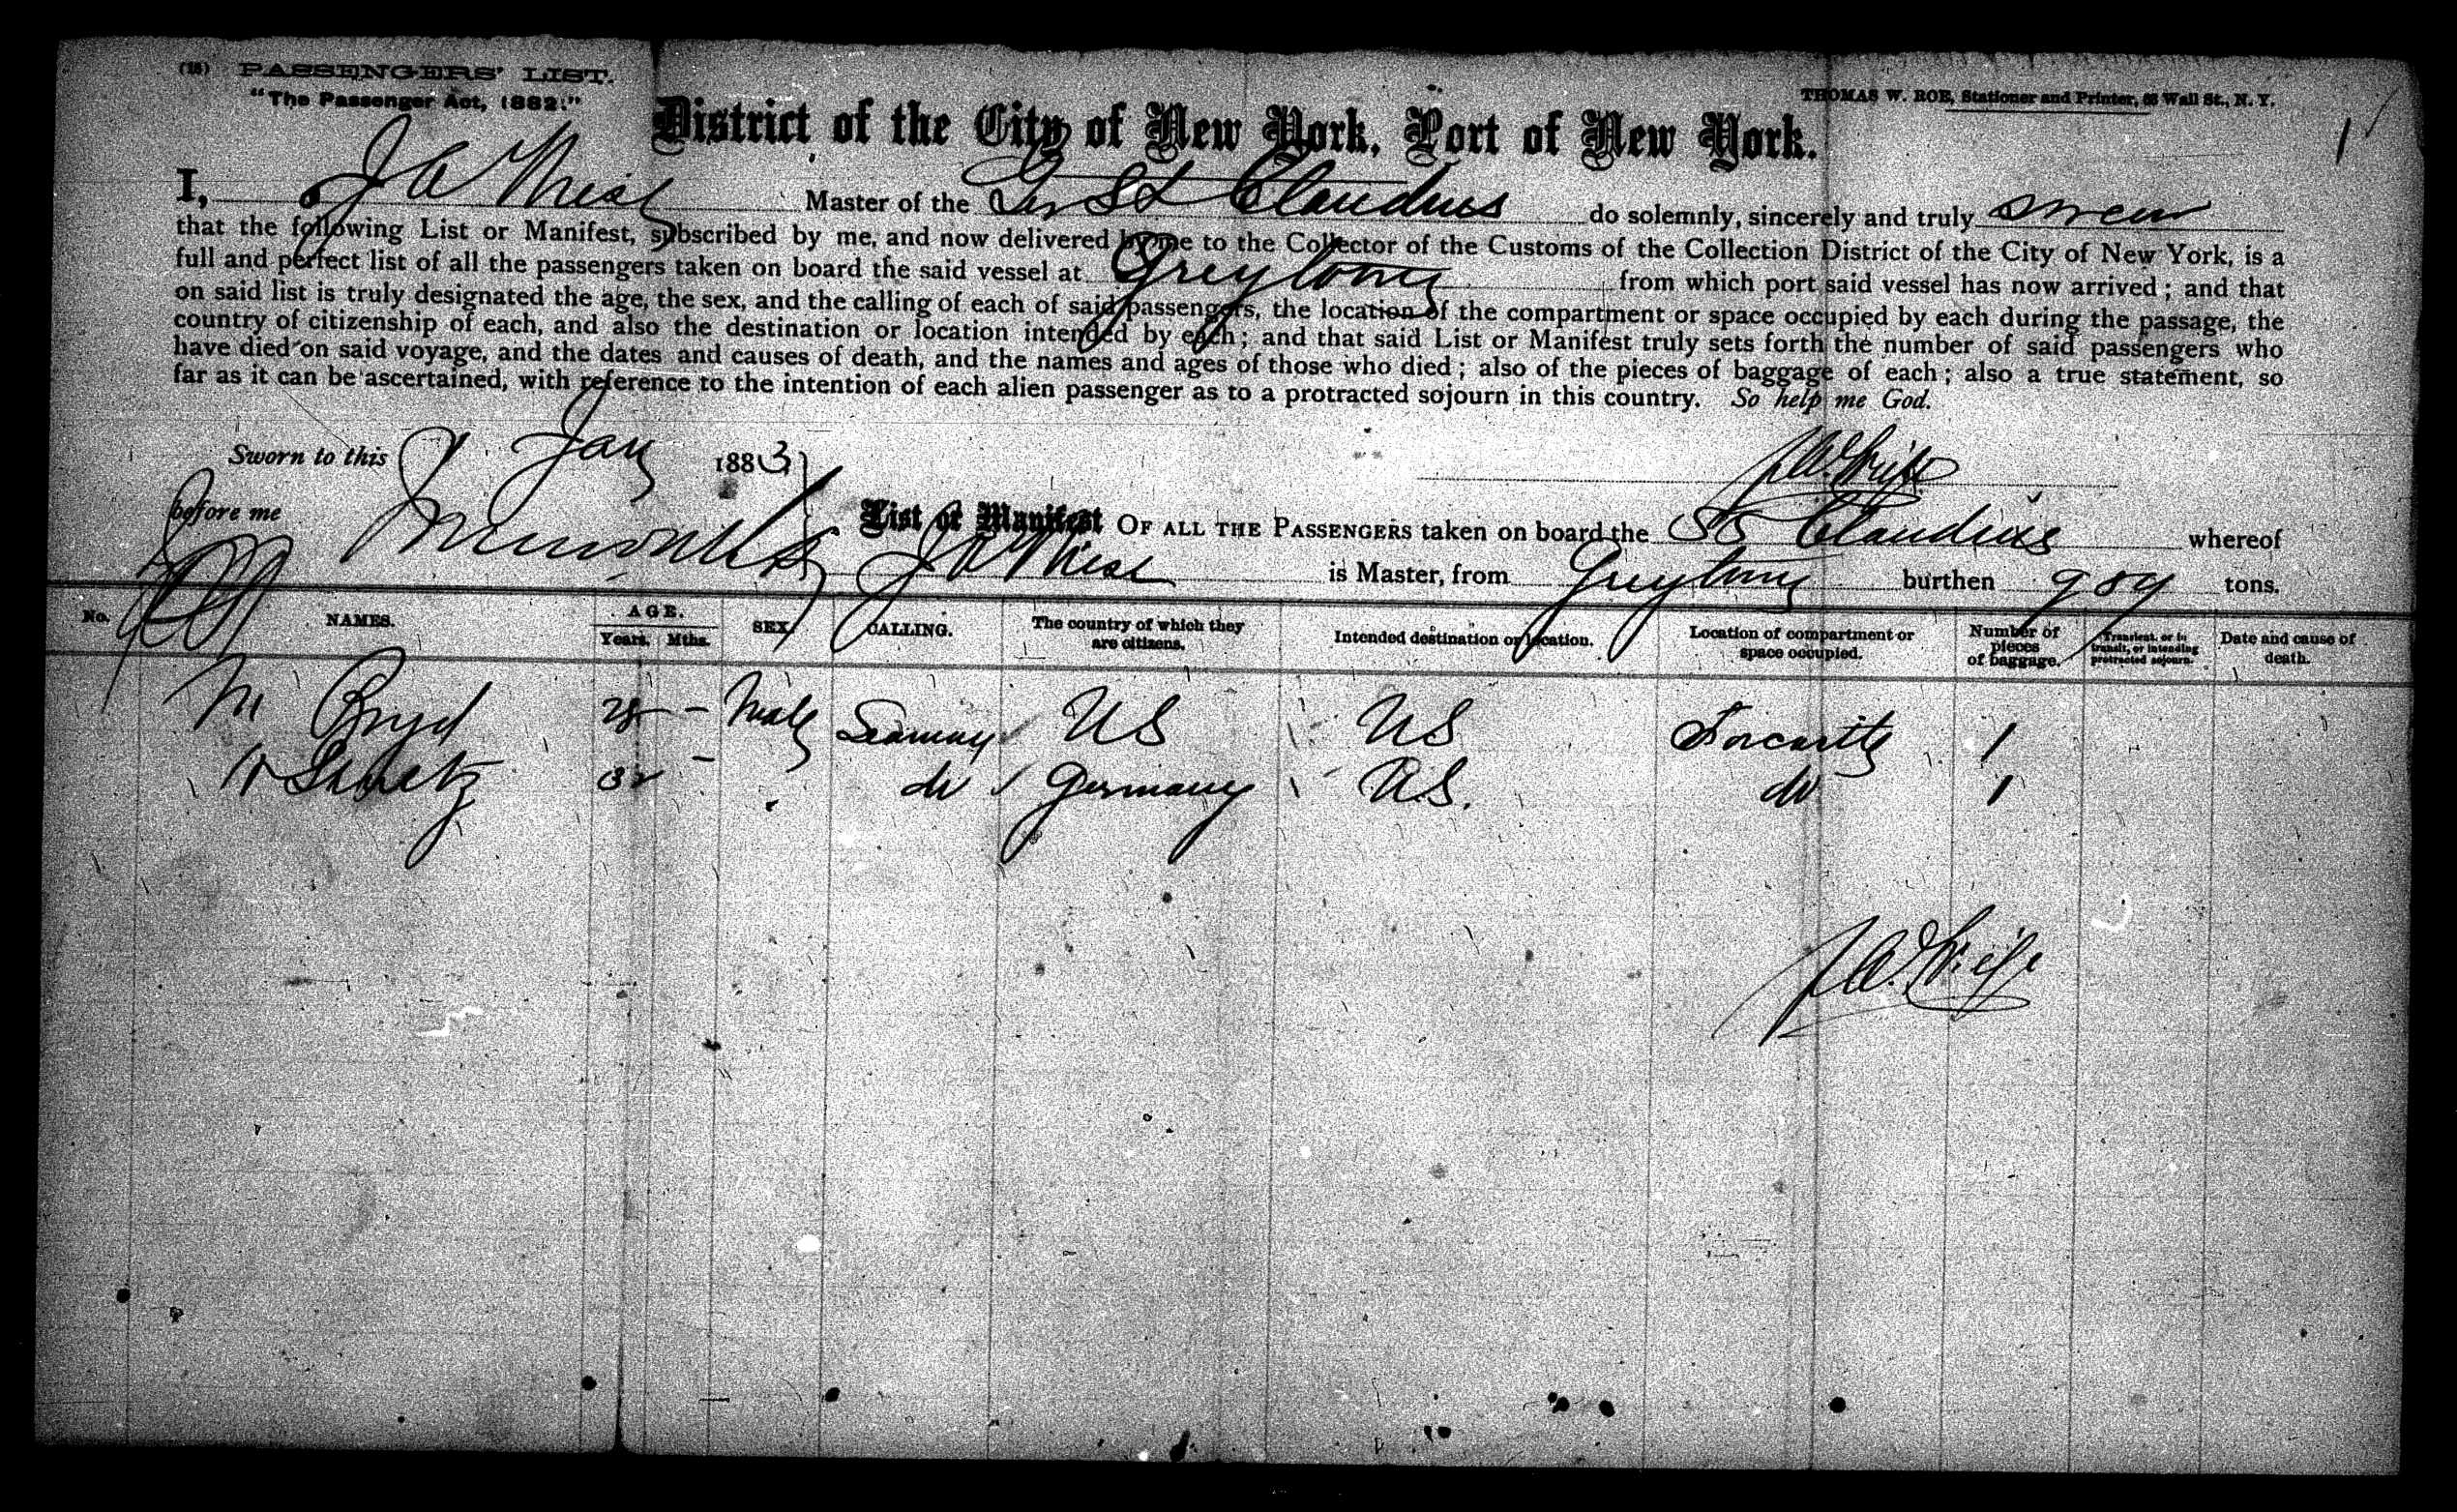 (18) PASSENGERS' LIST.
"The Passenger Act, 1882."
THOMAS W. ROE, Stationer and Printer, Wall St., N. Y.
1
District of the City of New York, Port of New York.
I, J W Master of the St Claudius do solemnly, sincerely and truly swear
that the following List or Manifest, subscribed by me, and now delivered by me to the Collector of the Customs of the Collection District of the City of New York, is a
full and perfect list of all the passengers taken on board the said vessel at Greytown from which port said vessel has now arrived; and that
on said list is truly designated the age, the sex, and the calling of each of said passengers, the location of the compartment or space occupied by each during the passage, the
country of citizenship of each, and also the destination or location intended by each; and that said List or Manifest truly sets forth the number of said passengers who
have died on said voyage, and the dates and causes of death, and the names and ages of those who died; also of the pieces of baggage of each; also a true statement, so
far as it can be ascertained, with reference to the intention of each alien passenger as to a protracted sojourn in this country. So help me God.
Sworn to this 9 Jany 1883
before me
List or Manifest OF ALL THE PASSENGERS taken on board the SS Claudius whereof
J W is Master, from Greytown burthen 989 tons.
No. NAMES. AGE. Years. Mths. SEX. CALLING. The country of which they are citizens. Intended destination or location. Location of compartment or space occupied. Number of pieces of baggage. Transient, or in transit, or intending protracted sojourn. Date and cause of death.
M Boyd 28 - Male Seaman US US Forcastle 1
32 - " do Germany U.S. do 1
J.W.